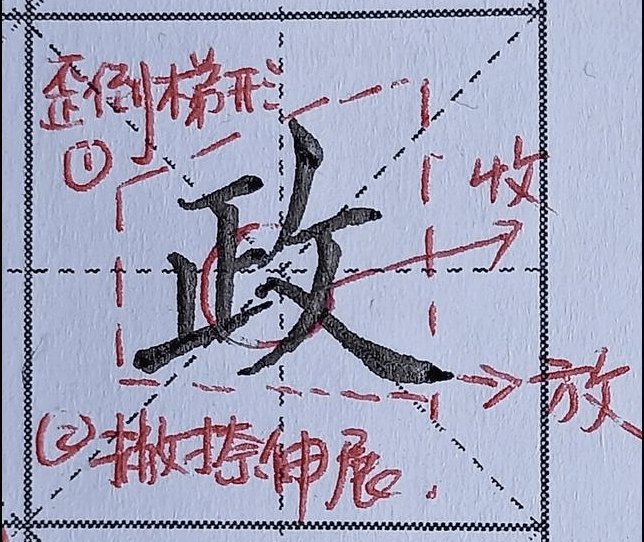 歪倒梯形
①
收
政
放
②撇捺伸展。